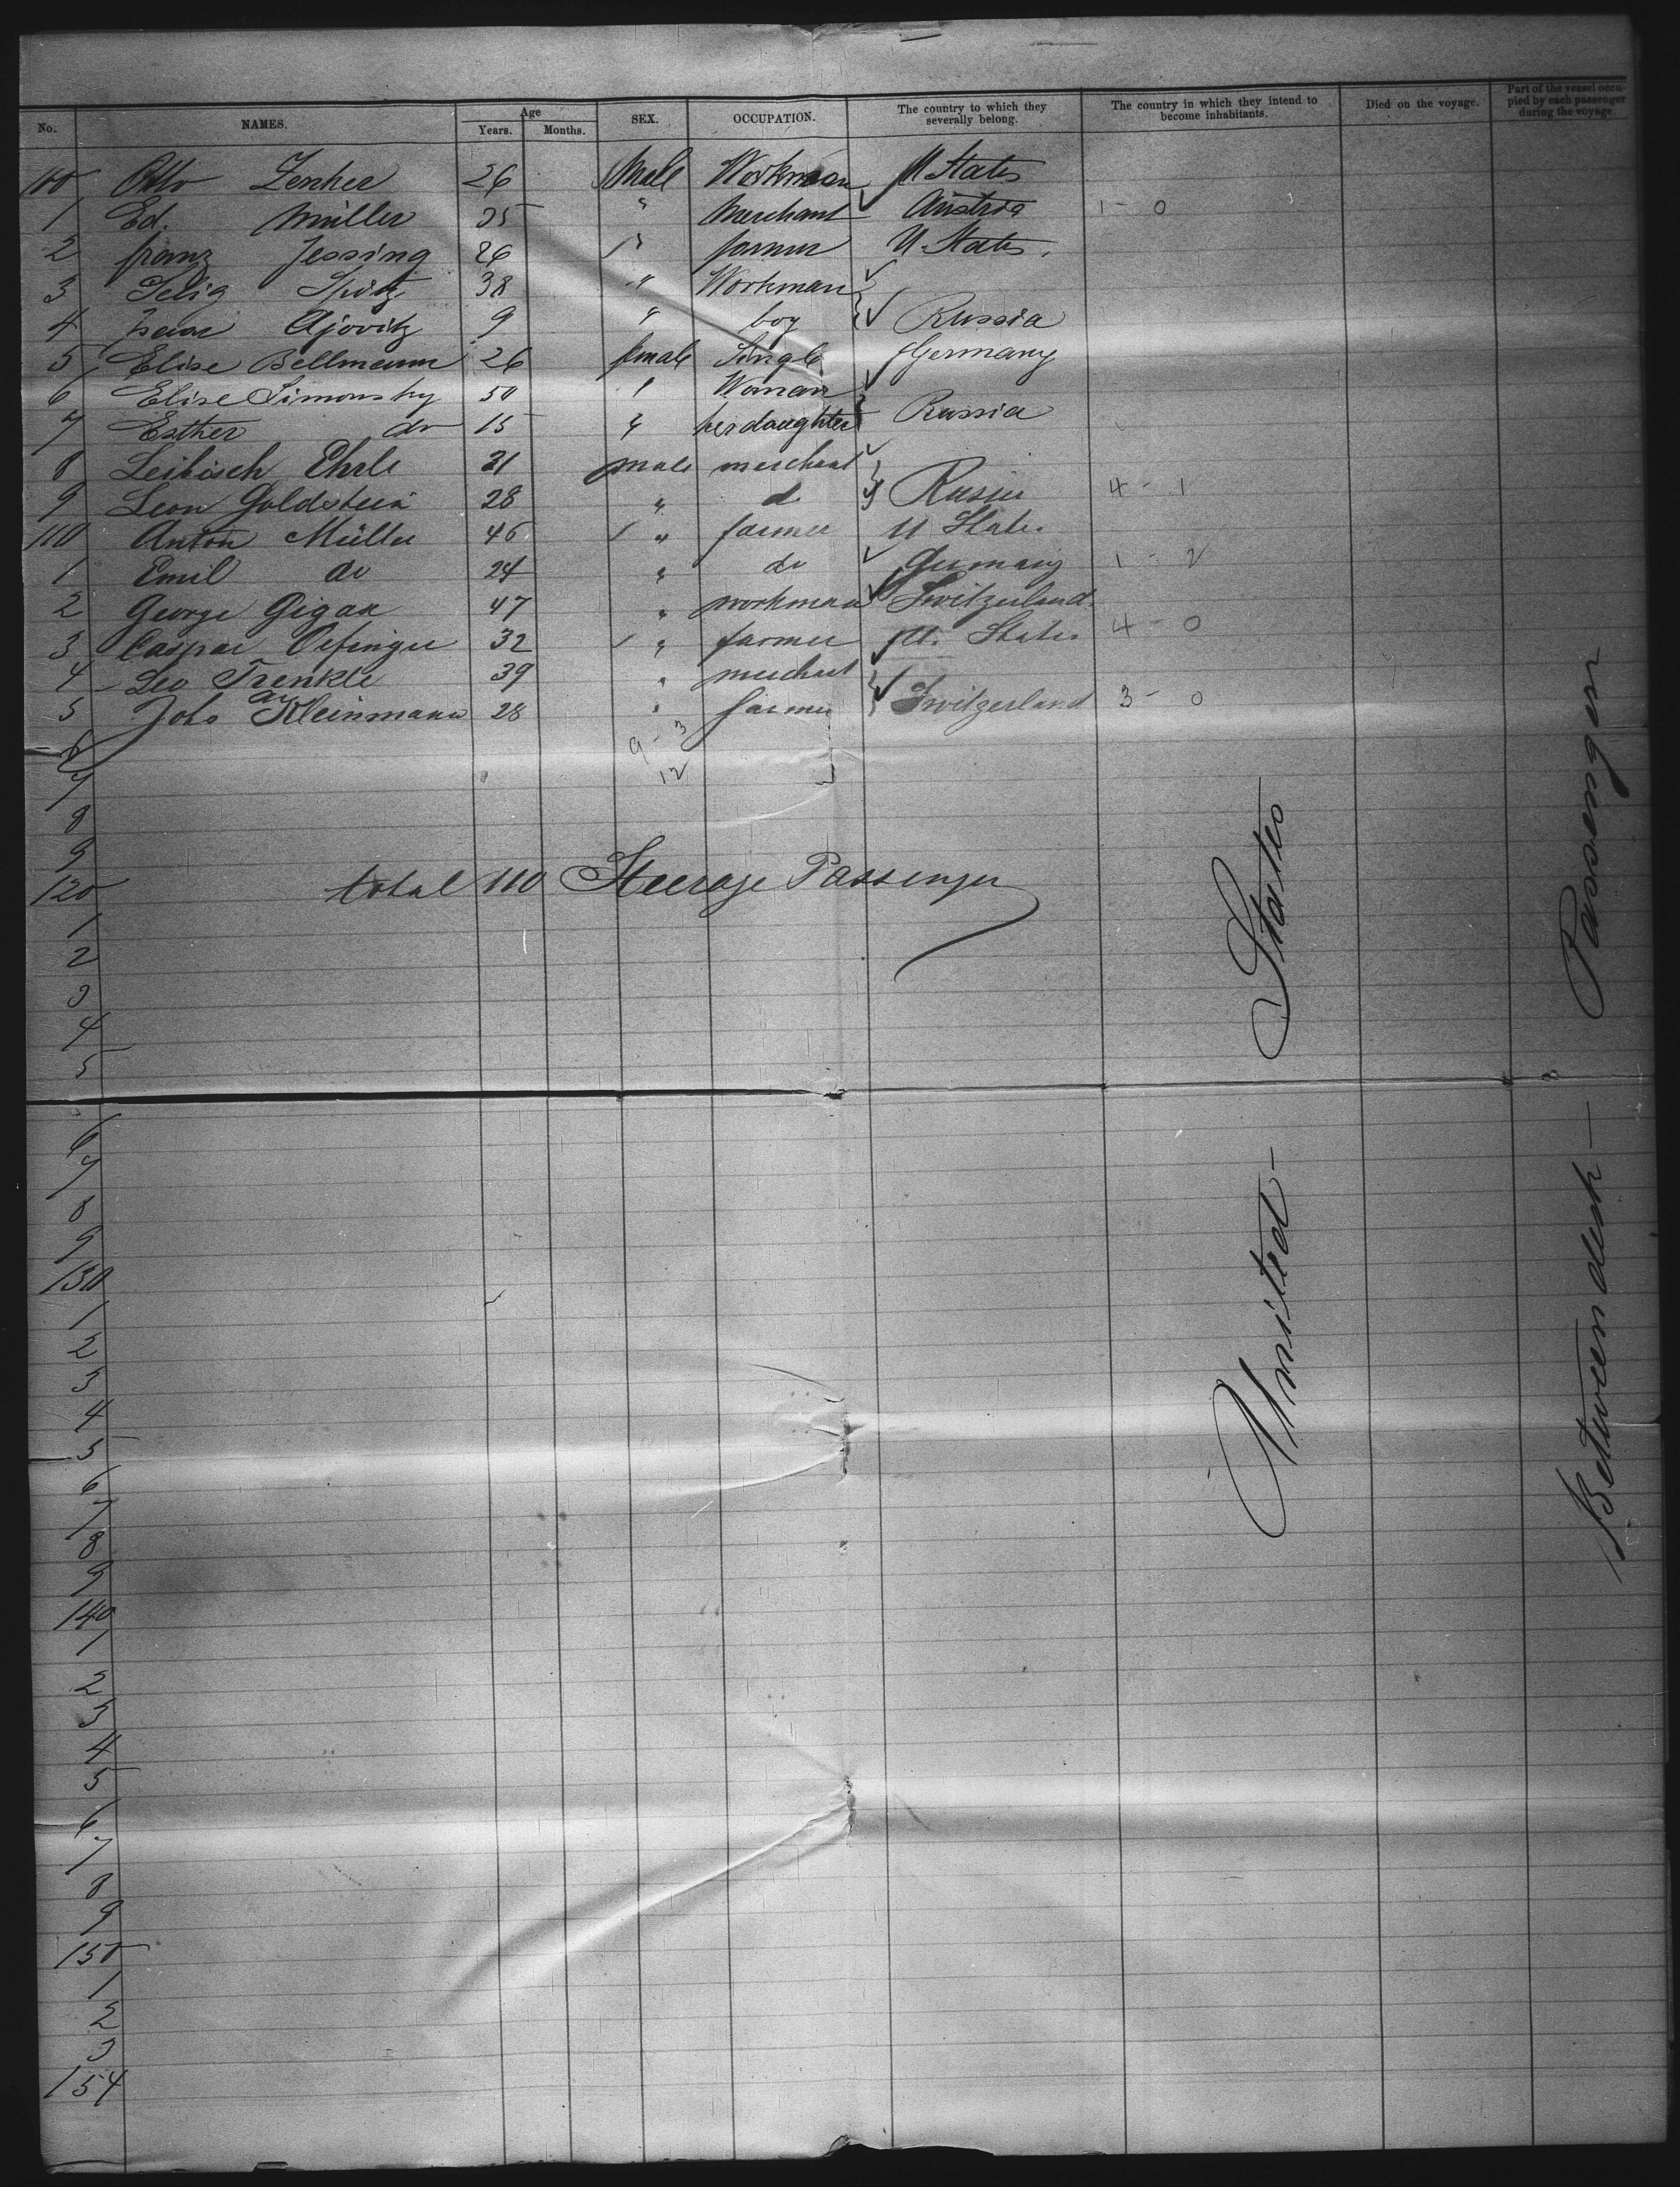 No. NAMES. Age Years. Months. SEX. OCCUPATION. The country to which they severally belong. The country in which they intend to become inhabitants. Died on the voyage. Part of the vessel occupied by each passenger during the voyage.
100 Otto Zenker 26 Male Workman U States
1 Ed. Müller 35 " Merchant Austria 1 - 0
2 franz Jessing 26 " farmer U. States.
3 Selig Spitz 38 " Workman
4 Isaac Ajovitz 9 " boy Russia
5 Elise Bellmann 26 female Single Germany
6 Elise Simonsky 50 " Woman
7 Esther do 15 " her daughter Russia
8 Leibisch Ehrle 31 male merchant
9 Leon Goldstein 28 " do Russia 4 - 1
110 Anton Müller 46 " farmer U States
1 Emil do 24 " do Germany 1 - 2
2 George Gigax 47 " workman Switzerland
3 Caspar Oefinger 32 " farmer U. States 4 - 0
4 Leo Trenkle 39 " merchant
5 Johs Kleinmann 28 " farmer Switzerland 3 - 0
6 9 - 3
7 12
8
9
120 total 110 Steerage Passenger
1
2
3
4
5
6
7
8
9
130
1
2
3
4
5
6
7
8
9
140
1
2
3
4
5
6
7
8
9
150
1
2
3
154
United - States
Betweendeck - Passenger